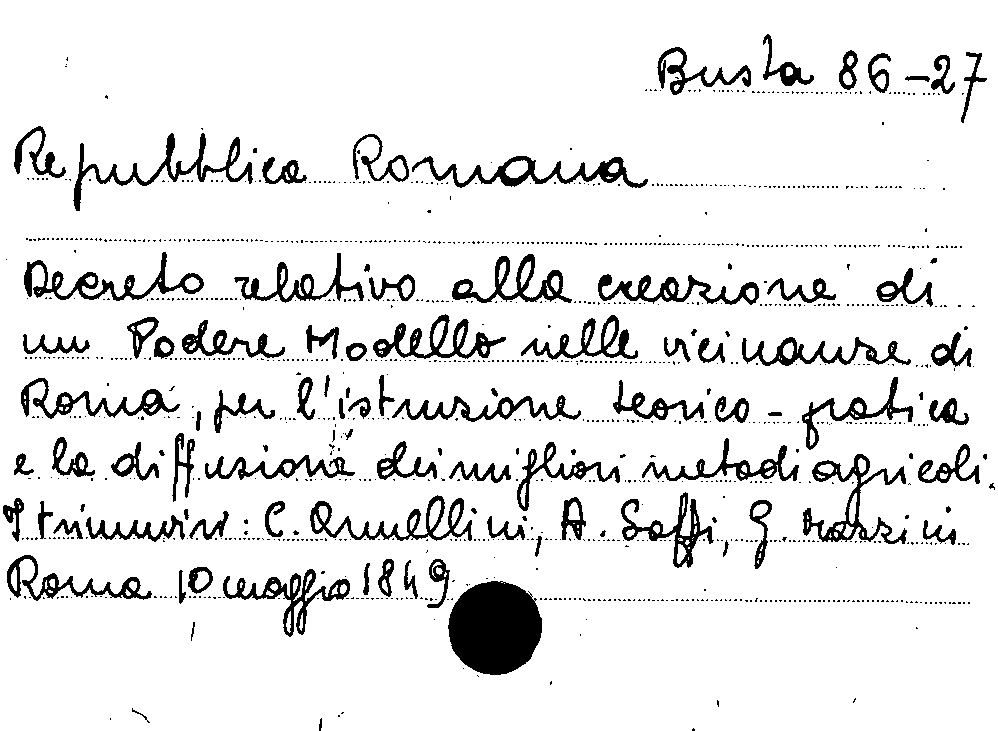 Busta 86-27
Repubblica Romana
Decreto relativo alla creazione di
un Podere Modello nelle vicinanze di
Roma, per l'istruzione teorico-pratica
e la diffusione dei migliori metodi agricoli.
I triumviri: C. Armellini, A. Saffi, G. Mazzini
Roma 10 maggio 1849